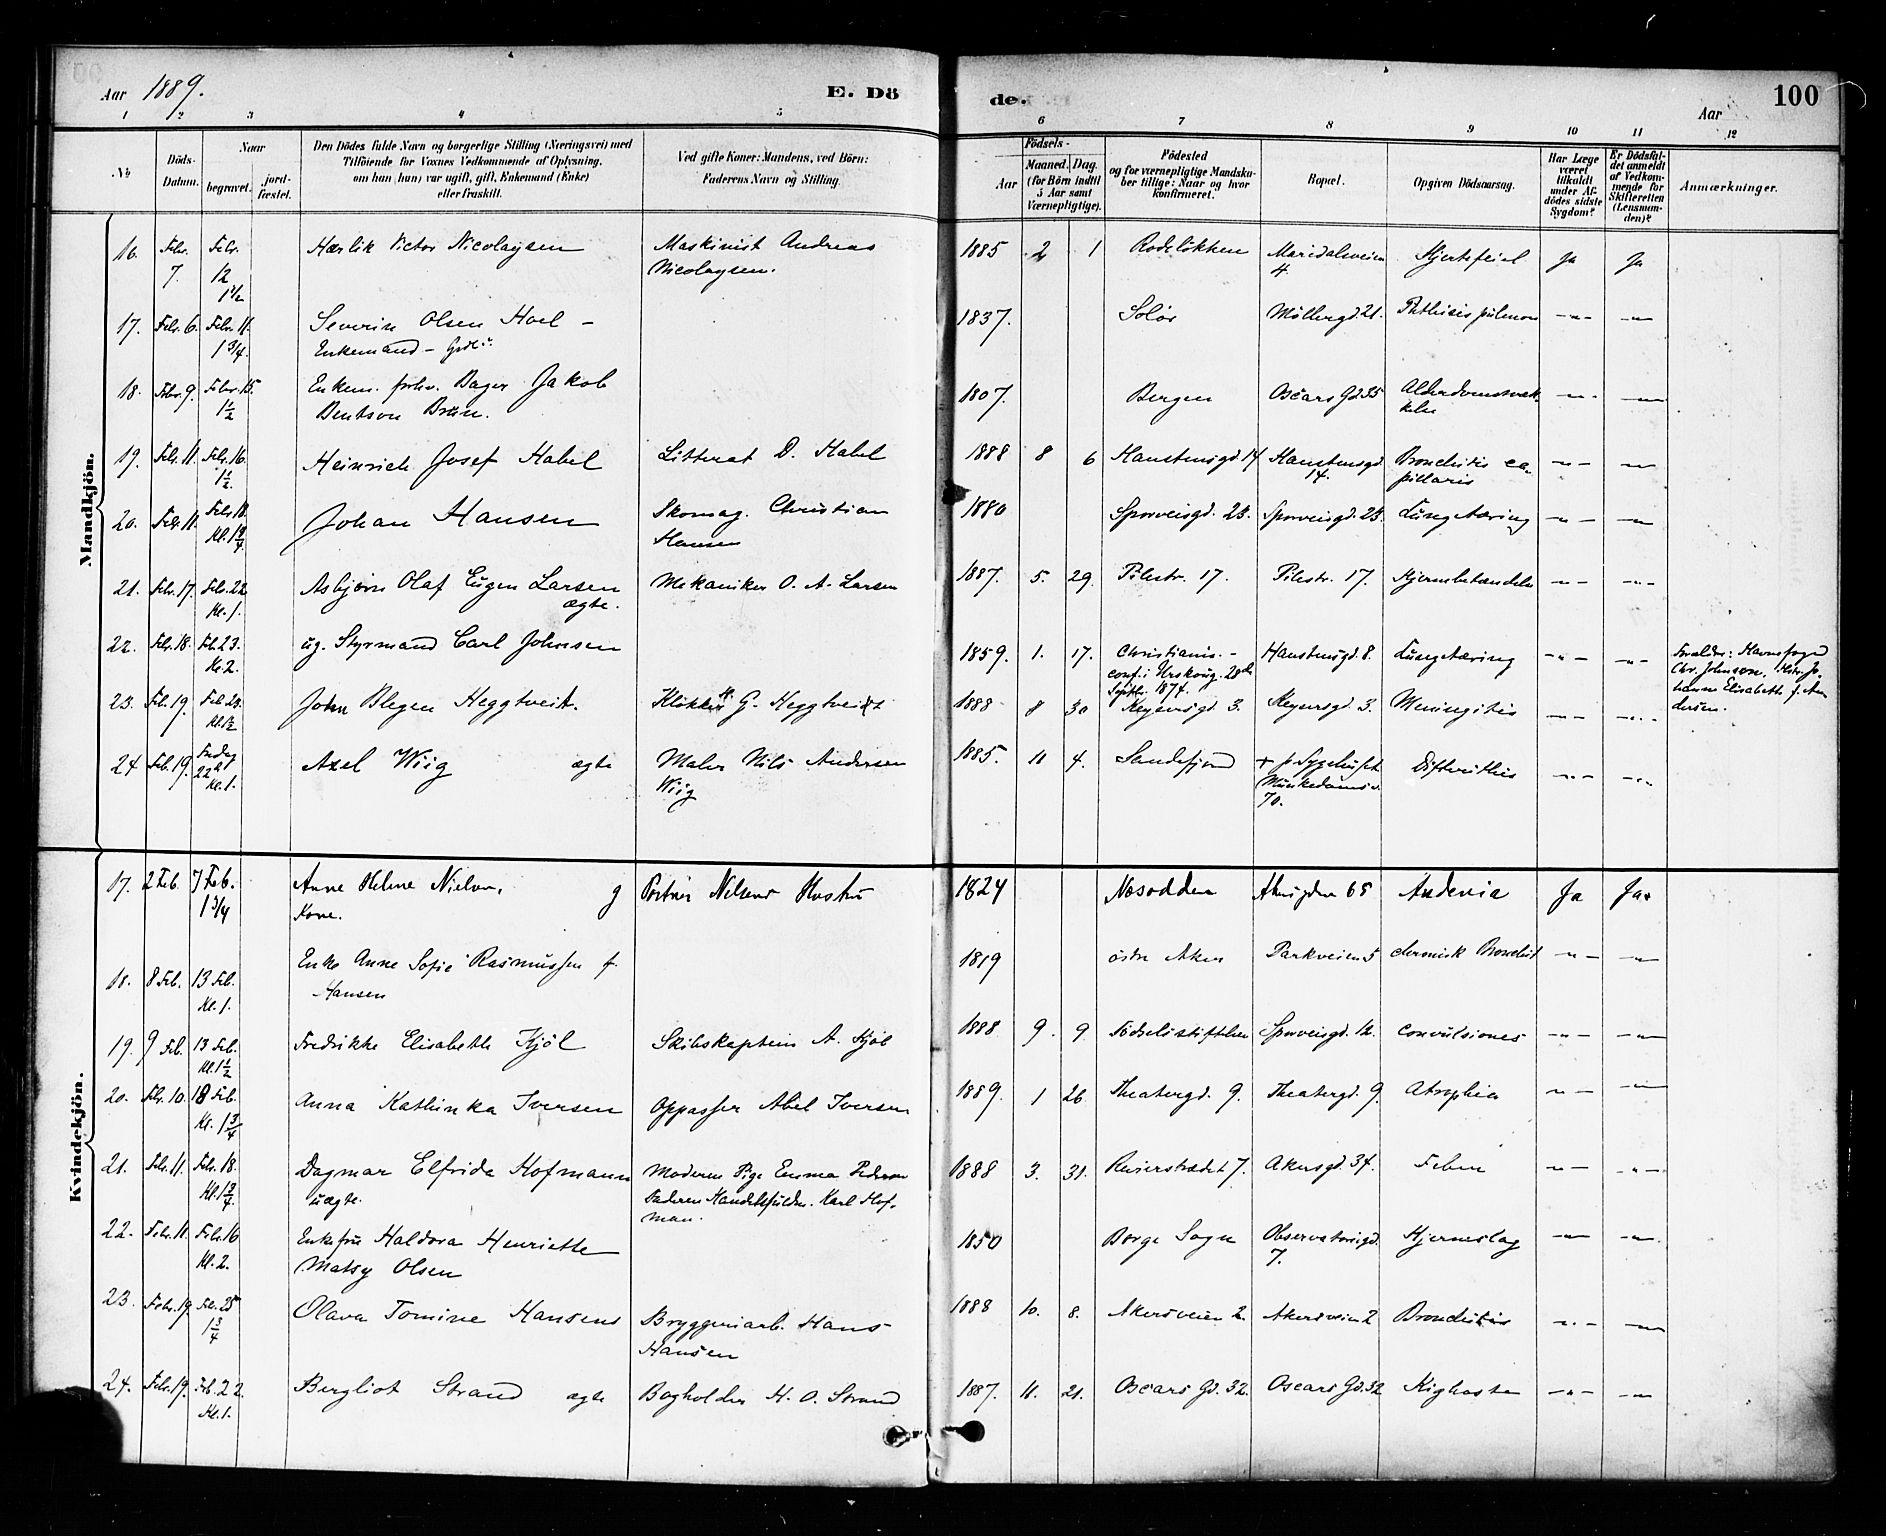 Aar 1889.
E. Dö
de.
Aar
100
1 2 3 4 5 6 7 8 9 10 11 12
No
Döds-Datum.
Naar
begravet.
jord-fæstet.
Den Dödes fulde Navn og borgerlige Stilling (Næringsvei) med
Tilföiende for Voxnes Vedkommende af Oplysning,
om han (hun) var ugift, gift, Enkemand (Enke)
eller fraskilt.
Ved gifte Koner: Mandens, ved Börn:
Faderens Navn og Stilling.
Födsels-
Aar
Maaned. Dag.
(for Börn indtil
5 Aar samt
Værnepligtige).
Födested
og for værnepligtige Mandska-
ber tillige: Naar og hvor
konfirmeret.
Bopæl.
Opgiven Dödsaarsag.
Har Læge
været
tilkaldt
under Af-
dödes sidste
Sygdom?
Er Dödsfal-
det anmeldt
af Vedkom-
mende for
Skifteretten
(Lensman-
den)?
Anmærkninger.
Mandkjön.
16. Febr. 7. Febr. 12 1 1/2 Victor Nicolaysen Maskinist Andreas Nicolaysen. 1885 2 1 Rodeløkken Maridalsveien 4. Hjertefeil Ja Ja
17. Febr. 6. Febr. 11. 1 3/4. Severin Olsen Hoel – Enkemand – 1837. Solør Møllergd. 21. Phthisis pulmon –"– –"–
18. Febr. 9. Febr. 15. 1 1/2 Enkem. forhv. Bager Jakob Bentson Brun. 1807. Bergen Oscars Gd. 35 –"– –"–
19. Febr. 11. Febr. 16. 1 1/2. Heinrich Josef Habel Litterat D. Habel 1888 8 6 Hanstensgd 14 Hanstensgd 14. Bronchitis capillaris –"– –"–
20. Febr. 11. Febr. 18. Kl. 1 3/4 Johan Hansen Skomag. Christian Hansen 1880 Sporveisgd. 23. Sporveisgd. 23. Lungetæring –"– –"–
21. Febr. 17. Febr. 22. Kl. 1. Asbjørn Olaf Eugen Larsen ægte. Mekaniker O. A. Larsen 1887. 5. 29. Pilestr. 17. Pilestr. 17. Hjernebetændelse –"– –"–
22. Febr. 18. Feb. 23. Kl. 2. ug. Styrmand Carl Johnsen 1859. 1. 17. Christiania. – conf. i Urskoug. 20de Septbr. 1874. Hanstensgd. 8. Lungetæring –"– –"– Forældre: Havnefoged Chr. Johnsen, Hustru Johanne Elisabeth f. Andersen.
23. Feb. 19. Feb. 23. Kl. 1 1/2 John Blegen Heggtveit. Klokker G. Heggtveit 1888 8 30 Keysersgd. 3. Keysersgd. 3. Meningitis –"– –"–
24 Feb. 19. Fredag 22de Kl. 1. Axel Wiig ægte Maler Nils Andersen Wiig 1885. 11 4. Sandefjord + p. Sygehuset Munkedamsv. 70. Difterithis –"– –"–
Kvindekjön.
17. 2 Feb. 7 Feb. 1 3/4 Anne Helene Nielsen, Kone. g Portner Nielsens Hustru 1824 Nesodden Akersgaden 65 Ja Ja.
18. 8 Feb. 13 Feb. Kl. 1. Enke Anne Sofie Rasmussen f. Hansen 1819 østre Aker Parkveien 5 chronisk Bronchit –"– –"–
19. 9 Feb. 13 Feb. Kl. 1 1/2 Fredrikke Elisabeth Kjøl Skibskaptein A. Kjøl 1888 9. 9 Fødselsstiftelsen Sporveisgd. 12. Convulsiones –"– –"–
20. Febr. 10. 18 Feb. Kl. 1 3/4 Anna Kathinka Iversen Oppasser Abel Iversen 1889. 1 26 Theatergd. 9. Theatergd. 9 Atrophia –"– –"–
21. Febr. 11. Febr. 18. Kl. 1 3/4. Dagmar Elfrida Hofmann uægte. Moderen Pige Emma Pederson Faderen Handelsfuldm. Karl Hofman. 1888 3. 31. Revierstrædet 7. Akersgd. 34. Feber –"– –"–
22. Febr. 11. Febr. 16 Kl. 2. Enkefru Haldora Henriette Matsy Olsen 1850 Borge Sogn Observatoriegd. 7. Hjerneslag –"– –"–
23. Febr. 19. Feb. 25 1 3/4 Olava Tomine Hansen Bryggeriarb. Hans Hansen 1888 10. 8. Akersveien 2. Akersveien 2 Bronchitis –"– –"–
24. Febr. 19. Feb. 22. Kl. 1. Bergliot Strand ægte Bogholder H. O. Strand 1887. 11. 21. Oscars Gd. 32. Oscars Gd. 32 Kighoste –"– –"–